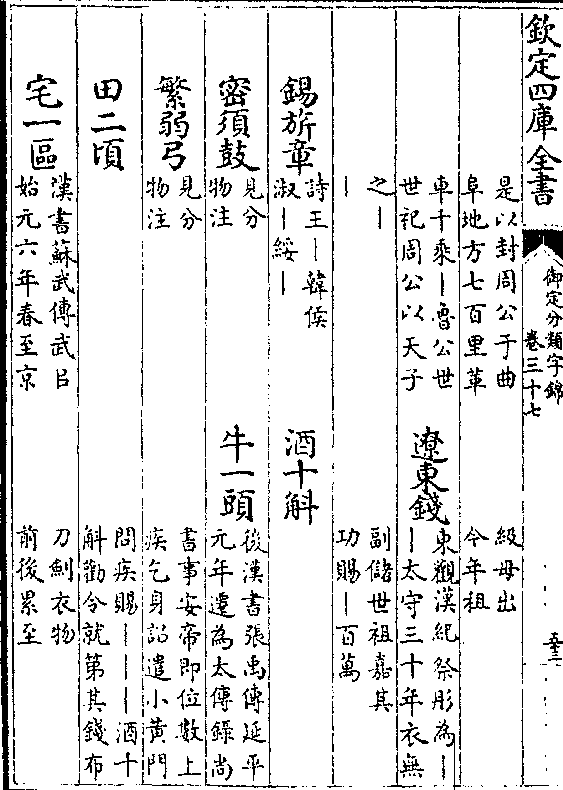 欽定四庫全書
御定分類字錦
卷三十七
是以封周公于曲
阜地方七百里革
車十乘｜魯公世
世祀周公以天子
之｜
｜
錫旂章
詩王｜韓侯
淑｜綏｜
密須鼓
見分
物注
繁弱弓
見分
物注
田二頃
宅一區
漢書蘇武傳武㠯
始元六年春至京
級毋出
今年租
遼東錢
東觀漢紀祭彤為｜
｜太守三十年衣無
副儲世祖嘉其
功賜｜百萬
酒十斛
牛一頭
後漢書張禹傳延平
元年遷為太傅錄尚
書事安帝即位數上
疾乞身詔遣小黃門
問疾賜｜｜｜酒十
斛勸令就第其錢布
刀劍衣物
前後累至